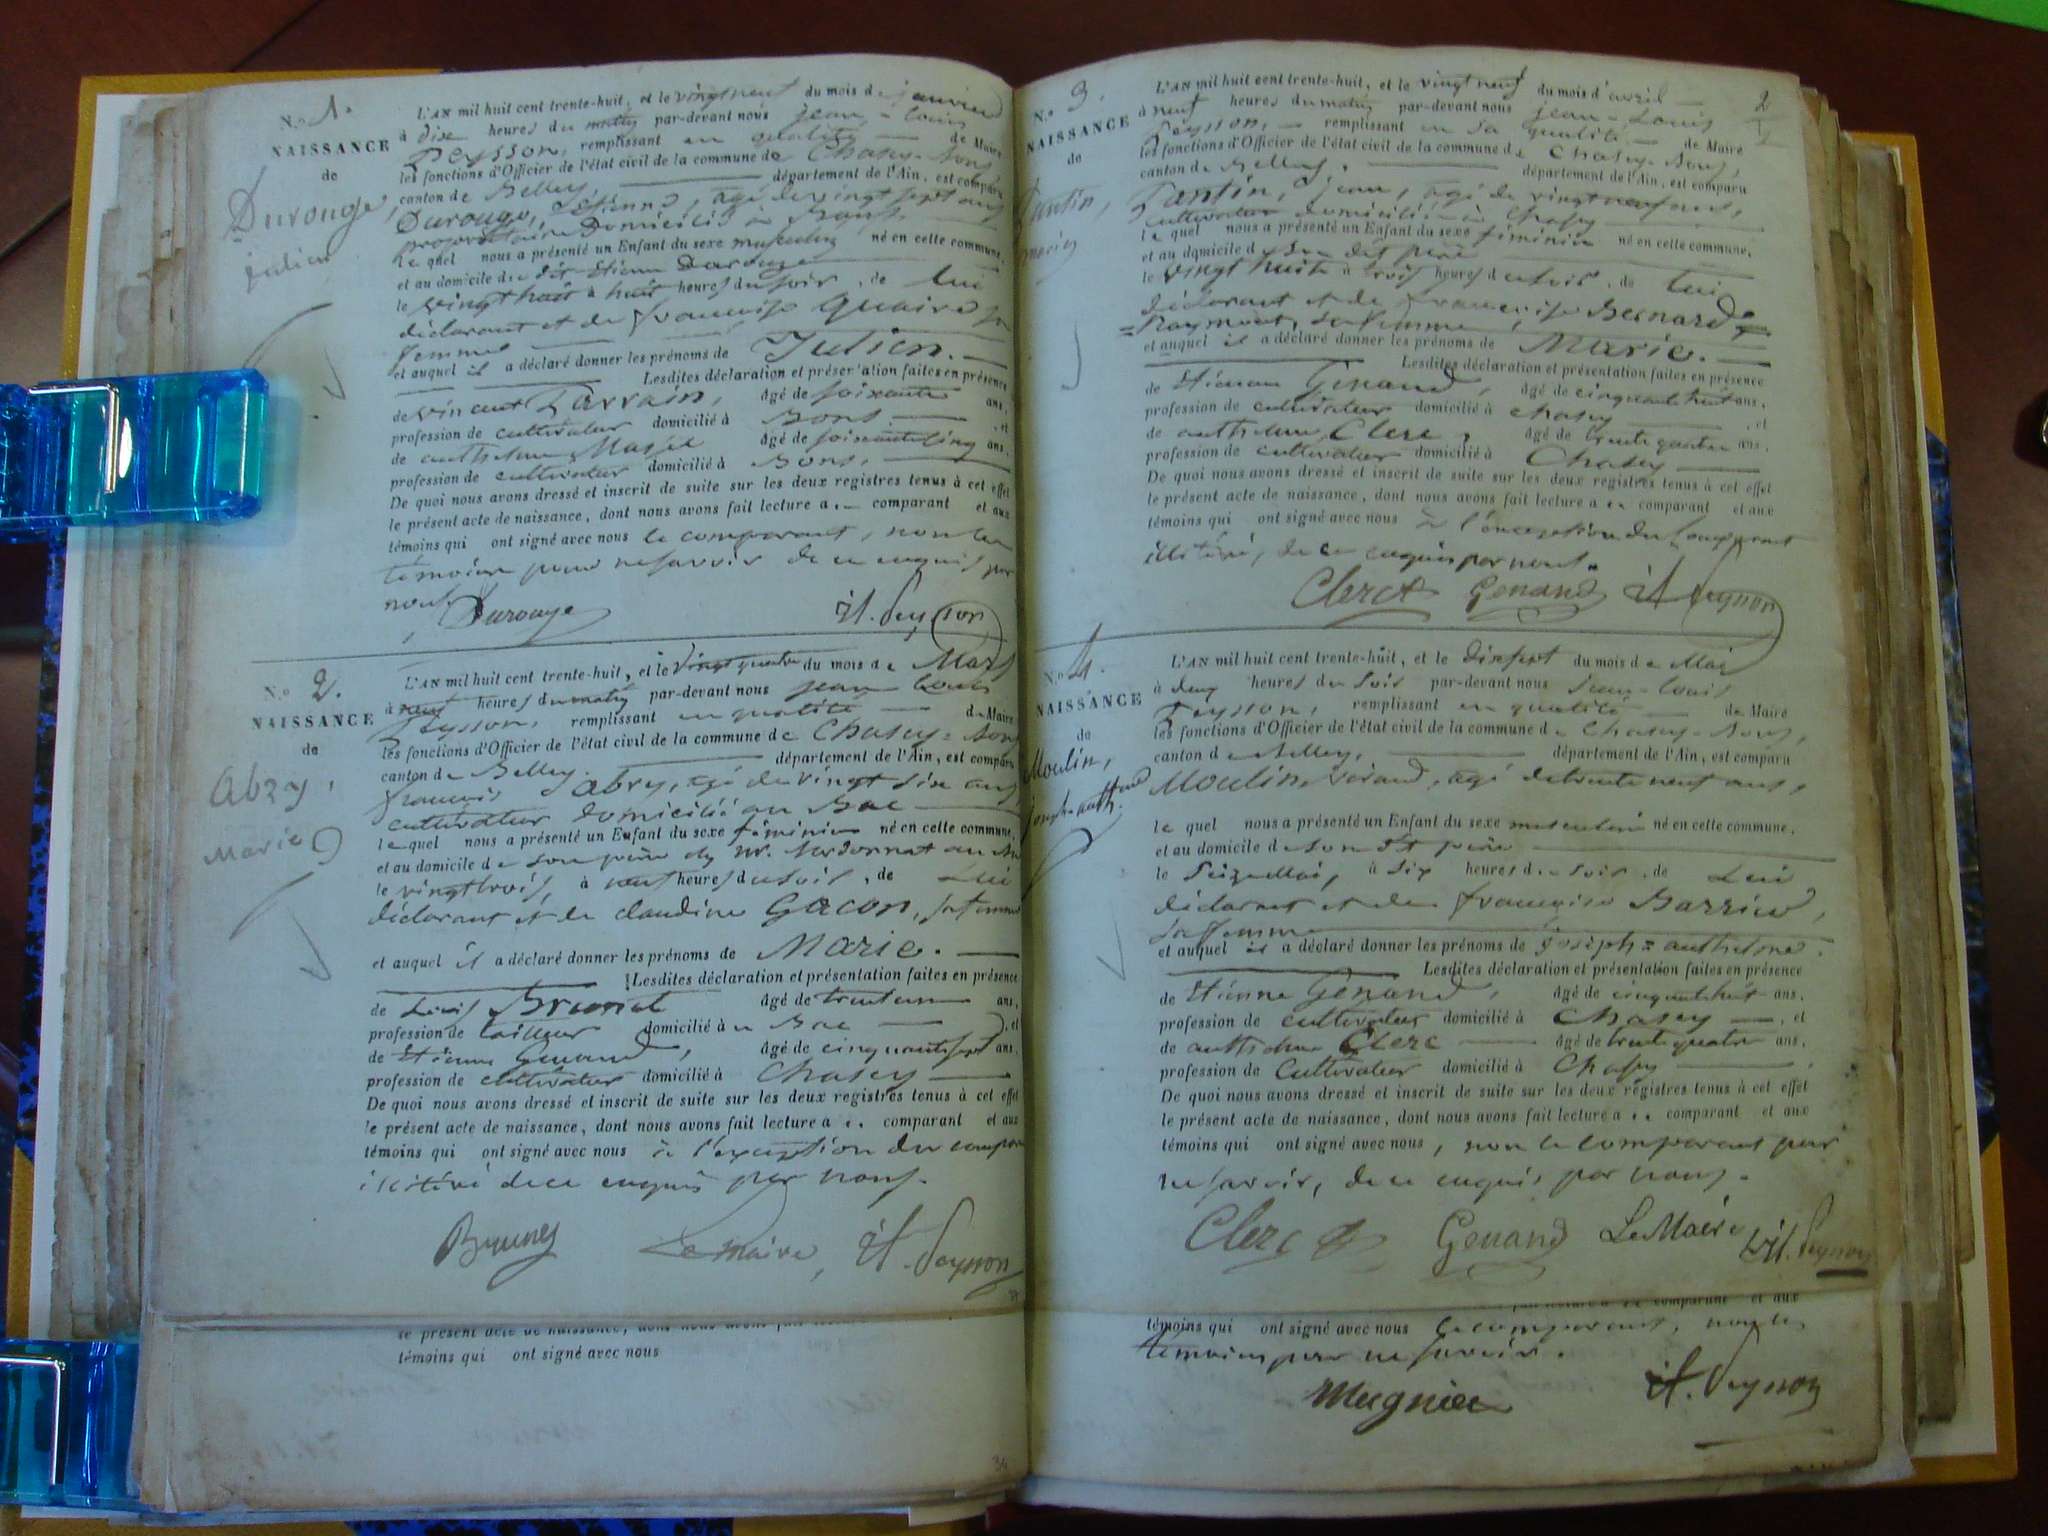 N.o 1.
NAISSANCE
de
Durouge,
julien
L'AN mil huit cent trente-huit, et le vingt neuf du mois de janvier
à dix heures du matin par-devant nous jean-louis
Peysson, remplissant en qualité de Maire
les fonctions d'Officier de l'état civil de la commune de Chasey-Bons,
canton de Belley, département de l'Ain, est comparu
Durouge, Etienne, agé de vingt sept ans
propriétaire domicilié à Bons
le quel nous a présenté un Enfant du sexe masculin né en cette commune,
et au domicile du dit Etienne Durouge
le vingt huit à huit heures du soir, de lui
déclarant et de françoise Quaire sa
femme
et auquel il a déclaré donner les prénoms de Julien.
Lesdites déclaration et présentation faites en présence
de vincent Parrain, âgé de soixante ans,
profession de cultivateur domicilié à Bons et
de anthelme âgé de soixante cinq ans,
profession de cultivateur domicilié à Bons,
De quoi nous avons dressé et inscrit de suite sur les deux registres tenus à cet effet
le présent acte de naissance, dont nous avons fait lecture au comparant et aux
témoins qui ont signé avec nous le comparant, non les
témoins pour ne savoir de ce enquis par
nous
Durouge jl. Peysson
N.o 2.
NAISSANCE
de
Abry,
Marie
L'AN mil huit cent trente-huit, et le vingt quatre du mois de Mars
à neuf heures du matin par-devant nous jean louis
Peysson, remplissant en qualité de Maire
les fonctions d'Officier de l'état civil de la commune de Chasey-Bons
canton de Belley département de l'Ain, est comparu
françois Abry, agé de vingt six ans
cultivateur domicilié au Bac
le quel nous a présenté un Enfant du sexe féminin né en cette commune,
et au domicile de son père au
le vingt trois, à neuf heures du soir, de Lui
déclarant et de claudine Gacon, sa femme
et auquel il a déclaré donner les prénoms de Marie.
Lesdites déclaration et présentation faites en présence
de Louis Brunet âgé de trente un ans,
profession de tailleur domicilié à u Bac et
de Etienne Genand, âgé de cinquante sept ans,
profession de cultivateur domicilié à Chasey
De quoi nous avons dressé et inscrit de suite sur les deux registres tenus à cet effet
le présent acte de naissance, dont nous avons fait lecture au comparant et aux
témoins qui ont signé avec nous à l'exception du comparant
illitéré de ce enquis par nous.
Brunet Le maire, jl. Peysson
le présent acte de naissance, dont nous avons fait
témoins qui ont signé avec nous
34
N.o 3.
2
NAISSANCE
de
Tantin,
marie
L'AN mil huit cent trente-huit, et le vingt neuf du mois d'avril
à neuf heures du matin par-devant nous jean-Louis
Peysson, remplissant en sa qualité de Maire
les fonctions d'Officier de l'état civil de la commune de Chasey-Bons,
canton de Belley. département de l'Ain, est comparu
Tantin, jean, agé de vingt neuf ans,
cultivateur domicilié à Chasey
le quel nous a présenté un Enfant du sexe féminin né en cette commune,
et au domicile du dit père
le vingt huit à trois heures du soir, de Lui
déclarant et de françoise Bernard
Raymont, sa femme,
et auquel il a déclaré donner les prénoms de Marie.
Lesdites déclaration et présentation faites en présence
de Etienne Genand, âgé de cinquante huit ans,
profession de cultivateur domicilié à chasey et
de anthelme Clerc, âgé de trente quatre ans,
profession de cultivateur domicilié à Chasey
De quoi nous avons dressé et inscrit de suite sur les deux registres tenus à cet effet
le présent acte de naissance, dont nous avons fait lecture au comparant et aux
témoins qui ont signé avec nous à l'exception du comparant
illitéré, de ce enquis par nous.
Clerc Genand jl Peysson
N.o 4.
NAISSANCE
de
Moulin,
joseph anthelme
L'AN mil huit cent trente-huit, et le dix sept du mois de Mai
à deux heures du soir par-devant nous jean-louis
Peysson, remplissant en qualité de Maire
les fonctions d'Officier de l'état civil de la commune de Chasey-Bons,
canton de Belley, département de l'Ain, est comparu
Moulin, agé de trente neuf ans,
le quel nous a présenté un Enfant du sexe masculin né en cette commune,
et au domicile de son dt père
le Seize Mai, à Six heures du soir, de Lui
déclarant et de françoise Barrier,
sa femme
et auquel il a déclaré donner les prénoms de joseph=anthelme.
Lesdites déclaration et présentation faites en présence
de Etienne Genand, âgé de cinquante huit ans,
profession de cultivateur domicilié à Chasey, et
de anthelme Clerc âgé de trente quatre ans,
profession de Cultivateur domicilié à Chasey
De quoi nous avons dressé et inscrit de suite sur les deux registres tenus à cet effet
le présent acte de naissance, dont nous avons fait lecture au comparant et aux
témoins qui ont signé avec nous, non le comparant pour
ne savoir, de ce enquis par nous.
Clerc Genand Le Maire jl. Peysson
comparant et aux
témoins qui ont signé avec nous le comparant, non les
témoins pour ne savoir.
Mugnier jl. Peysson